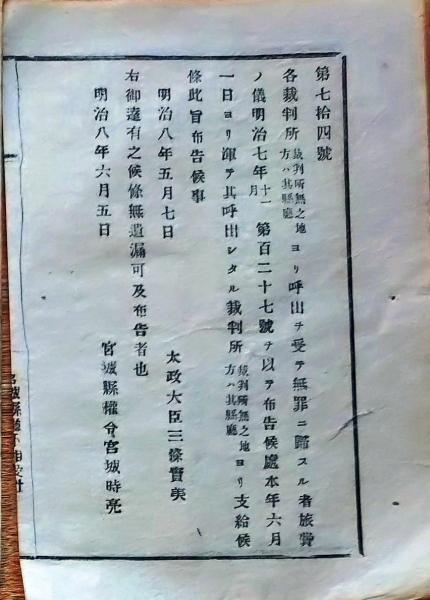 第七拾四號
各裁判所裁判所無之地方ハ其縣廳ヨリ呼出ヲ受テ無罪ニ歸スル者旅費
ノ儀明治七年十一月第百二十七號ヲ以テ布告候處本年六月
一日ヨリ渾テ其呼出シタル裁判所裁判所無之地方ハ其縣廳ヨリ支給候
條此旨布告候事
明治八年五月七日
太政大臣三條實美
右御達有之候條無遺漏可及布告者也
明治八年六月五日
宮城縣權令宮城時亮